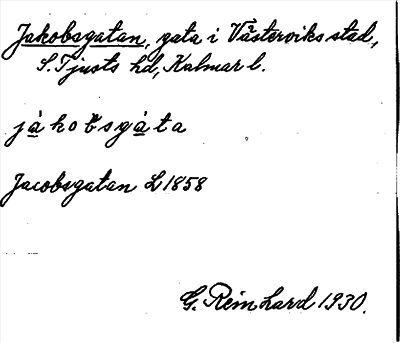 Jakobsgatan, gata i Västerviks stad,
S. Tjusts hd, Kalmar l.
jàkobsgàta
Jacobsgatan L 1858
G. Reinhard 1930.